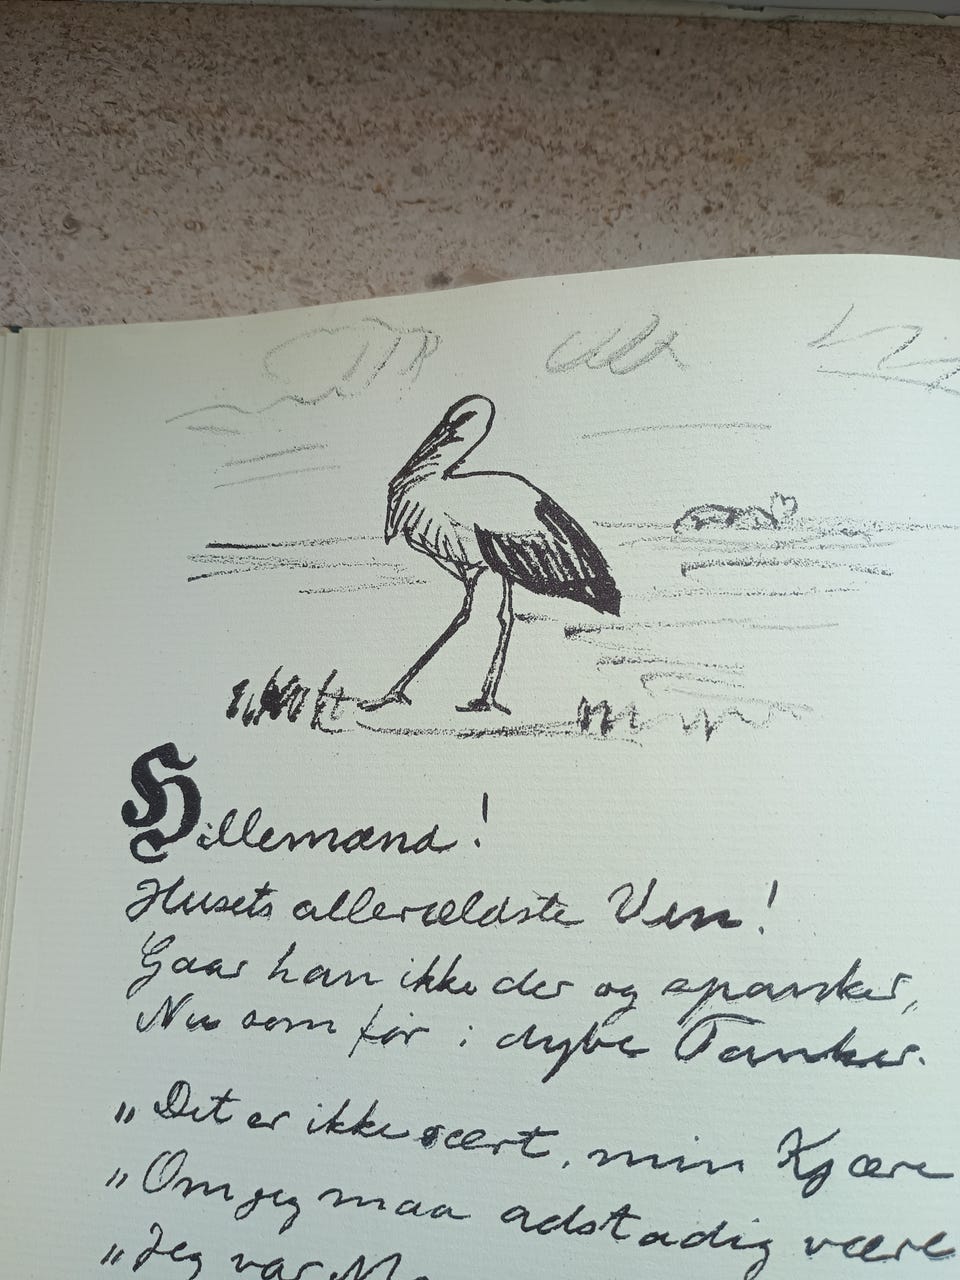 Hillemænd!
Husets allerældste Ven!
Gaar han ikke der og spanker,
Nu som før i dybe Tanker.
„Det er ikke sært, min Kjære
„Om jeg maa adstadig være
„Jeg var